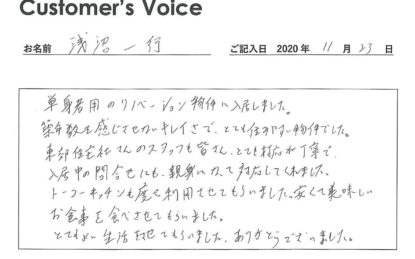 Customer's Voice
お名前 浅沼一行 ご記入日 2020 年 11 月 23 日
単身者用のリノベーション物件に入居しました。
築年数を感じさせないキレイさで、とても住みやすい物件でした。
東部住宅社さんのスタッフも皆さん、とても対応が丁寧で、
入居中の問合せにも、親身になって対応してくれました。
トーコーキッチンも度々利用させてもらいました。安くて美味しい
お食事を食べさせてもらいました。
とてもよい生活をさせてもらいました、ありがとうございました。